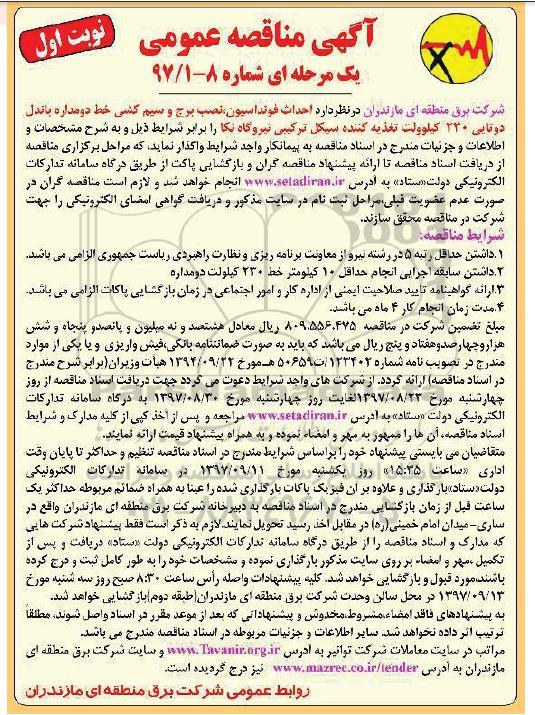 نوبت اول
آگهی مناقصه عمومی
یک مرحله ای شماره ۸-۹۷/۱
شرکت برق منطقه ای مازندران درنظردارد احداث فونداسیون،نصب برج و سیم کشی خط دومداره باندل
دوتایی ۲۳۰ کیلوولت تغذیه کننده سیکل ترکیبی نیروگاه نکا را برابر شرایط ذیل و به شرح مشخصات و
اطلاعات و جزئیات مندرج در اسناد مناقصه به پیمانکار واجد شرایط واگذار نماید، که مراحل برگزاری مناقصه
از دریافت اسناد مناقصه تا ارائه پیشنهاد مناقصه گران و بازگشایی پاکت از طریق درگاه سامانه تدارکات
الکترونیکی دولت«ستاد» به آدرس www.setadiran.ir انجام خواهد شد و لازم است مناقصه گران در
صورت عدم عضویت قبلی،مراحل ثبت نام در سایت مذکور و دریافت گواهی امضای الکترونیکی را جهت
شرکت در مناقصه محقق سازند.
شرایط مناقصه:
۱.داشتن حداقل رتبه ۵ در رشته نیرو از معاونت برنامه ریزی و نظارت راهبردی ریاست جمهوری الزامی می باشد.
۲.داشتن سابقه اجرایی انجام حداقل ۱۰ کیلومتر خط ۲۳۰ کیلولت دومداره
۳.ارائه گواهینامه تایید صلاحیت ایمنی از اداره کار و امور اجتماعی در زمان بازگشایی پاکات الزامی می باشد.
۴.مدت زمان انجام کار ۴ ماه می باشد.
مبلغ تضمین شرکت در مناقصه ۸۰۹.۵۵۶.۴۷۵ ریال معادل هشتصد و نه میلیون و پانصدو پنجاه و شش
هزاروچهارصدوهفتاد و پنج ریال می باشد که باید به صورت ضمانتنامه بانکی،فیش واریزی و یا یکی از موارد
مندرج در تصویب نامه شماره ۱۲۳۴۰۲/ت۵۰۶۵۹هـ مورخ ۱۳۹۴/۰۹/۲۲ هیأت وزیران(برابر شرح مندرج
در اسناد مناقصه) ارائه گردد. از شرکت های واجد شرایط دعوت می گردد جهت دریافت اسناد مناقصه از روز
چهارشنبه مورخ ۱۳۹۷/۰۸/۲۳لغایت روز چهارشنبه مورخ ۱۳۹۷/۰۸/۳۰ به درگاه سامانه تدارکات
الکترونیکی دولت «ستاد» به آدرس www.setadiran.ir مراجعه و پس از اخذ کپی از کلیه مدارک و شرایط
اسناد مناقصه، آن ها را ممهور به مهر و امضاء نموده و به همراه پیشنهاد قیمت ارائه نمایند.
متقاضیان می بایستی پیشنهاد خود را براساس شرایط مندرج در اسناد مناقصه تنظیم و حداکثر تا پایان وقت
اداری «ساعت ۱۵:۲۵» روز یکشنبه مورخ ۱۳۹۷/۰۹/۱۱ در سامانه تدارکات الکترونیکی
دولت«ستاد»بارگذاری و علاوه بر آن فیزیک پاکات بارگذاری شده را عینا به همراه ضمائم مربوطه حداکثر یک
ساعت قبل از زمان بازگشایی مندرج در اسناد مناقصه به دبیرخانه شرکت برق منطقه ای مازندران واقع در
ساری-میدان امام خمینی(ره) در مقابل اخذ رسید تحویل نمایند.لازم به ذکر است فقط پیشنهاد شرکت هایی
که مدارک و اسناد مناقصه را از طریق درگاه سامانه تدارکات الکترونیکی دولت «ستاد» دریافت و پس از
تکمیل ،مهر و امضاء بر روی سایت مذکور بارگذاری نموده و مشخصات خود را به طور کامل ثبت و درج کرده
باشند،مورد قبول و بازگشایی خواهد شد. کلیه پیشنهادات واصله رأس ساعت ۸:۳۰ صبح روز سه شنبه مورخ
۱۳۹۷/۰۹/۱۳ در محل سالن وحدت شرکت برق منطقه ای مازندران(طبقه دوم)بازگشایی خواهد شد.
به پیشنهادهای فاقد امضاء،مشروط،مخدوش و پیشنهاداتی که بعد از موعد مقرر در اسناد واصل شوند، مطلقاً
ترتیب اثر داده نخواهد شد. سایر اطلاعات و جزئیات مربوطه در اسناد مناقصه مندرج می باشد.
مراتب در سایت معاملات شرکت توانیر به آدرس www.Tavanir.org.ir و سایت شرکت برق منطقه ای
مازندران به آدرس www.mazrec.co.ir/tender نیز درج گردیده است.
روابط عمومی شرکت برق منطقه ای مازندران